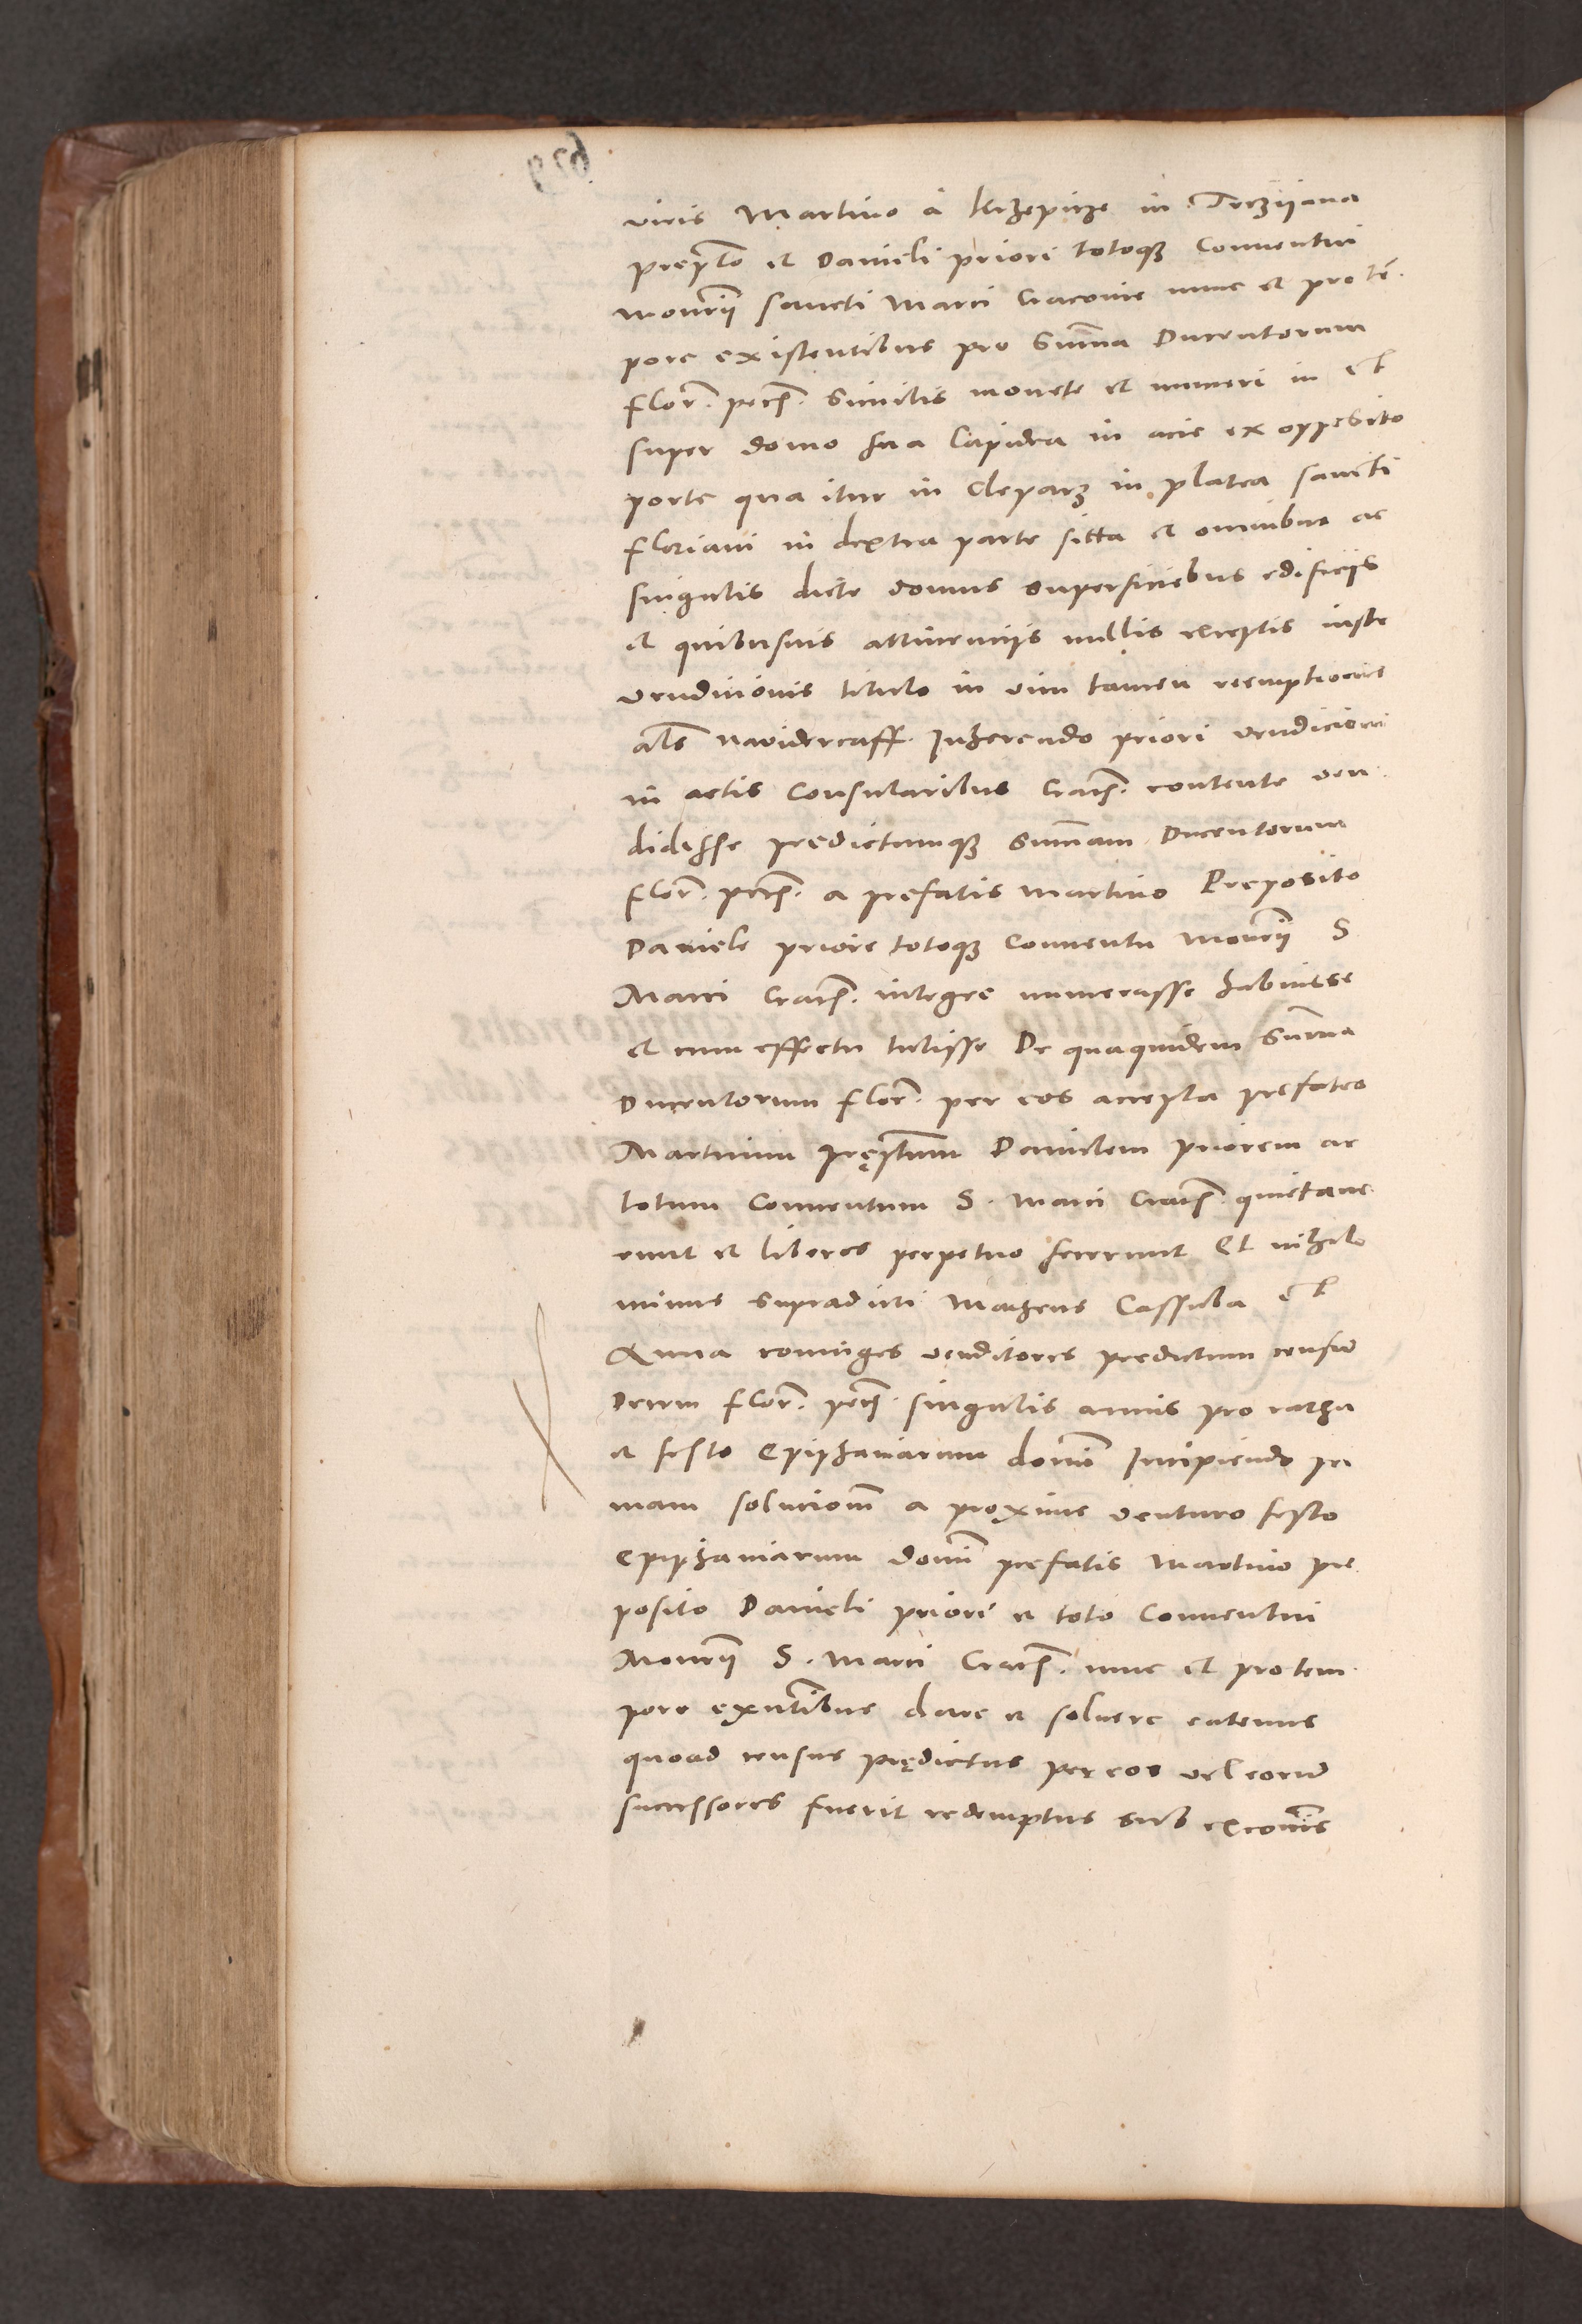 viris Martino à Krzepicze in Trczijana
prepto et Danieli priori totoqз Conventui
monrij sancti Marci Cracovie nunc et pro tem-
pore existentibus pro Summa Ducentorum
flor. pecs. Similis monete et numeri in et
super domo sua lapidea in acie ex opposito
porte qua itur in Cleparz in platea sancti
Floriani in dextra parte sitta et omnibus ac
singulis dicte domus superficiebus edificijs
et quibusvis attinencijs nullis exceptis iuste
vendicionis titulo in vim tamen reempcionis
als nawiderkaff. Inherendo priori vendicioni
in actis Consularibus Cracs. contente ven-
didisse predictamqз Summam Ducentorum
flor. pecs. a prefatis Martino Preposito
Daniele priore totoqз Conventu Monrij S
Marci Cracs. integre numerasse habuisse
et cum effectu tulisse De quaquidem Summa
Ducentorum flor. per eos accepta prefatos
Martinum pręptum Danielem priorem ac
totum Conventum S. Marci Cracs. quietave-
runt et liberos perpetuo fecerunt Et nihilo
minus supradicti Matheus Cassuba et
Anna coniuges venditores predictum censum
Decem flor. pecs. singulis annis pro rathu
et festo Epiphaniarum domi Incipiendo pri
mam solucionem a proxime venturo festo
Epiphaniarum domi prefatis Martino pre
posito Danieli priori et toto Conventui
Monrij S. Marci Cracs. nunc et pro tem-
pore exntibus dare et solvere eatenus
quoad census prędictus per eos vel eorum
successores fuerit redemptus sub exconis